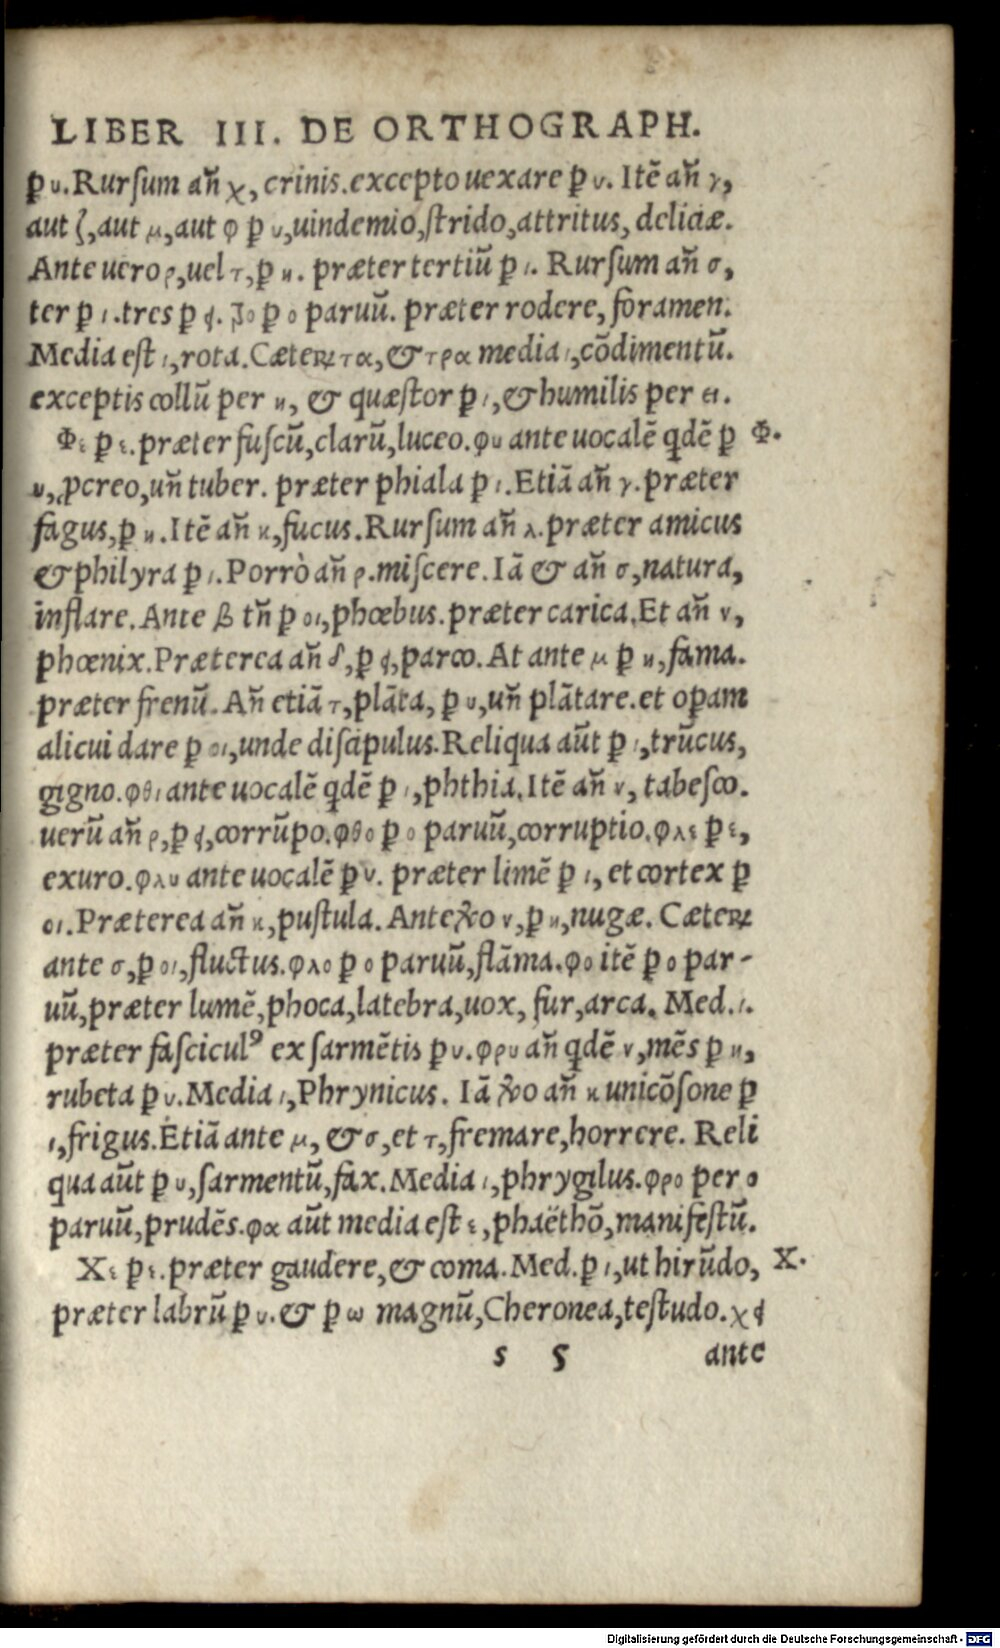 LIBER III. DE ORTHOGRAPH.
ꝑ υ. Rurſum añ χ, crinis. excepto uexare ꝑ υ. Itē añ γ,
aut ζ, aut μ, aut φ ꝑ υ, uindemio, ſtrido, attritus, deliciæ.
Ante uero ρ, uel τ, ꝑ η. præter tertiū ꝑ ι. Rurſum añ σ,
ter ꝑ ι. tres ꝑ ει. ο ꝑ ο paruū. præter rodere, foramen.
Media est ι, rota. Cæteꝝ τα, & τρα media ι, cōdimentū.
exceptis collū per η, & quæſtor ꝑ ι, & humilis per ει.
Φε ꝑ ε. præter fuſcū, clarū, luceo. φυ ante uocalē qdē ꝑ Φ.
υ, ꝓcreo, uñ tuber. præter phiala ꝑ ι. Etiā añ γ. præter
fagus, ꝑ η. Itē añ κ, fucus. Rurſum añ λ. præter amicus
& philyra ꝑ ι. Porrò añ ρ. miſcere. Iā & añ σ, natura,
inflare. Ante β tñ ꝑ οι, phœbus. præter carica. Et añ ν,
phœnix. Præterea añ δ, ꝑ ει, parco. At ante μ ꝑ η, fama.
præter frenū. Añ etiā τ, plāta, ꝑ υ, uñ plātare. et oꝑam
alicui dare ꝑ οι, unde diſcipulus. Reliqua aūt ꝑ ι, trūcus,
gigno. φθι ante uocalē qdē ꝑ ι, phthia. Itē añ ν, tabeſco.
uerū añ ρ, ꝑ ει, corrūpo. φθο ꝑ ο paruū, corruptio. φλε ꝑ ε,
exuro. φλυ ante uocalē ꝑ υ. præter limē ꝑ ι, et cortex ꝑ
οι. Præterea añ κ, puſtula. Ante ν, ꝑ η, nugæ. Cæteꝝ
ante σ, ꝑ οι, fluctus. φλο ꝑ ο paruū, flāma. φο itē ꝑ ο par-
uū, præter lumē, phoca, latebra, uox, fur, arca. Med. ι.
præter faſciculꝰ ex ſarmētis ꝑ υ. φρυ añ qdē ν, mēs ꝑ η,
rubeta ꝑ υ. Media ι, Phrynicus. Iā añ κ unicōſone ꝑ
ι, frigus. Etiā ante μ, & σ, et τ, fremare, horrere. Reli
qua aūt ꝑ υ, ſarmentū, fax. Media ι, phrygilus. φρο per ο
paruū, prudēs. φα aūt media est ε, phaëthō, manifeſtū.
Χε ꝑ ε. præter gaudere, & coma. Med. ꝑ ι, ut hirūdo, X.
præter labrū ꝑ υ. & ꝑ ω magnū, Cheronea, teſtudo. χει
s 5 ante
Digitalisierung gefördert durch die Deutsche Forschungsgemeinschaft - DFG